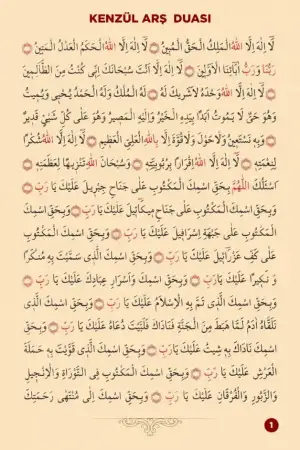 KENZÜL ARŞ DUASI
لَا إِلٰهَ إِلَّا اللهُ الْمَلِكُ الْحَقُّ الْمُبِينُ لَا إِلٰهَ إِلَّا اللهُ الْحَكَمُ الْعَدْلُ الْمَتِينُ
رَبُّنَا وَرَبُّ اٰبَآئِنَا الْاَوَّلِينَ لَا إِلٰهَ إِلَّا اَنْتَ سُبْحَانَكَ اِنِّى كُنْتُ مِنَ الظَّالِمِينَ
لَا إِلٰهَ إِلَّا اللهُ وَحْدَهُ لَا شَرِيكَ لَهُ لَهُ الْمُلْكُ وَلَهُ الْحَمْدُ يُحْيِى وَيُمِيتُ
وَهُوَ حَىٌّ لَا يَمُوتُ اَبَدًا بِيَدِهِ الْخَيْرُ وَاِلَيْهِ الْمَصِيرُ وَهُوَ عَلَى كُلِّ شَىْءٍ قَدِيرٌ
وَبِهِ نَسْتَعِينُ وَلَا حَوْلَ وَلَا قُوَّةَ اِلَّا بِاللهِ الْعَلِىِّ الْعَظِيمِ لَا إِلٰهَ إِلَّا اللهُ شُكْرًا
لِنِعْمَتِهِ لَا إِلٰهَ إِلَّا اللهُ اِقْرَارًا بِرُبُوبِيَّتِهِ وَسُبْحَانَ اللهِ تَنْزِيهًا لِعَظَمَتِهِ
اَسْئَلُكَ اللّٰهُمَّ بِحَقِّ اسْمِكَ الْمَكْتُوبِ عَلَى جَنَاحِ جِبْرِيلَ عَلَيْكَ يَا رَبِّ
وَبِحَقِّ اسْمِكَ الْمَكْتُوبِ عَلَى جَنَاحِ مِيكَآئِيلَ عَلَيْكَ يَا رَبِّ وَبِحَقِّ اسْمِكَ
الْمَكْتُوبِ عَلَى جَبْهَةِ اِسْرَافِيلَ عَلَيْكَ يَا رَبِّ وَبِحَقِّ اسْمِكَ الْمَكْتُوبِ
عَلَى كَفِّ عَزْرَآئِيلَ عَلَيْكَ يَا رَبِّ وَبِحَقِّ اسْمِكَ الَّذِى سَمَّيْتَ بِهِ مُنْكَرًا
وَ نَكِيرًا عَلَيْكَ يَا رَبِّ وَبِحَقِّ اسْمِكَ وَاَسْرَارِ عِبَادِكَ عَلَيْكَ يَا رَبِّ
وَبِحَقِّ اسْمِكَ الَّذِى تَمَّ بِهِ الْاِسْلَامُ عَلَيْكَ يَا رَبِّ وَبِحَقِّ اسْمِكَ الَّذِى
تَلَقَّاهُ اٰدَمُ لَمَّا هَبَطَ مِنَ الْجَنَّةِ فَنَادَاكَ فَلَبَّيْتَ دُعَاهُ عَلَيْكَ يَا رَبِّ وَبِحَقِّ
اسْمِكَ نَادَاكَ بِهِ شِيثُ عَلَيْكَ يَا رَبِّ وَبِحَقِّ اسْمِكَ الَّذِى قَوَّيْتَ بِهِ حَمَلَةَ
الْعَرْشِ عَلَيْكَ يَا رَبِّ وَبِحَقِّ اسْمِكَ الْمَكْتُوبِ فِى التَّوْرَاةِ وَالْاِنْجِيلِ
وَالزَّبُورِ وَالْفُرْقَانِ عَلَيْكَ يَا رَبِّ وَبِحَقِّ اسْمِكَ اِلَى مُنْتَهٰى رَحْمَتِكَ
1